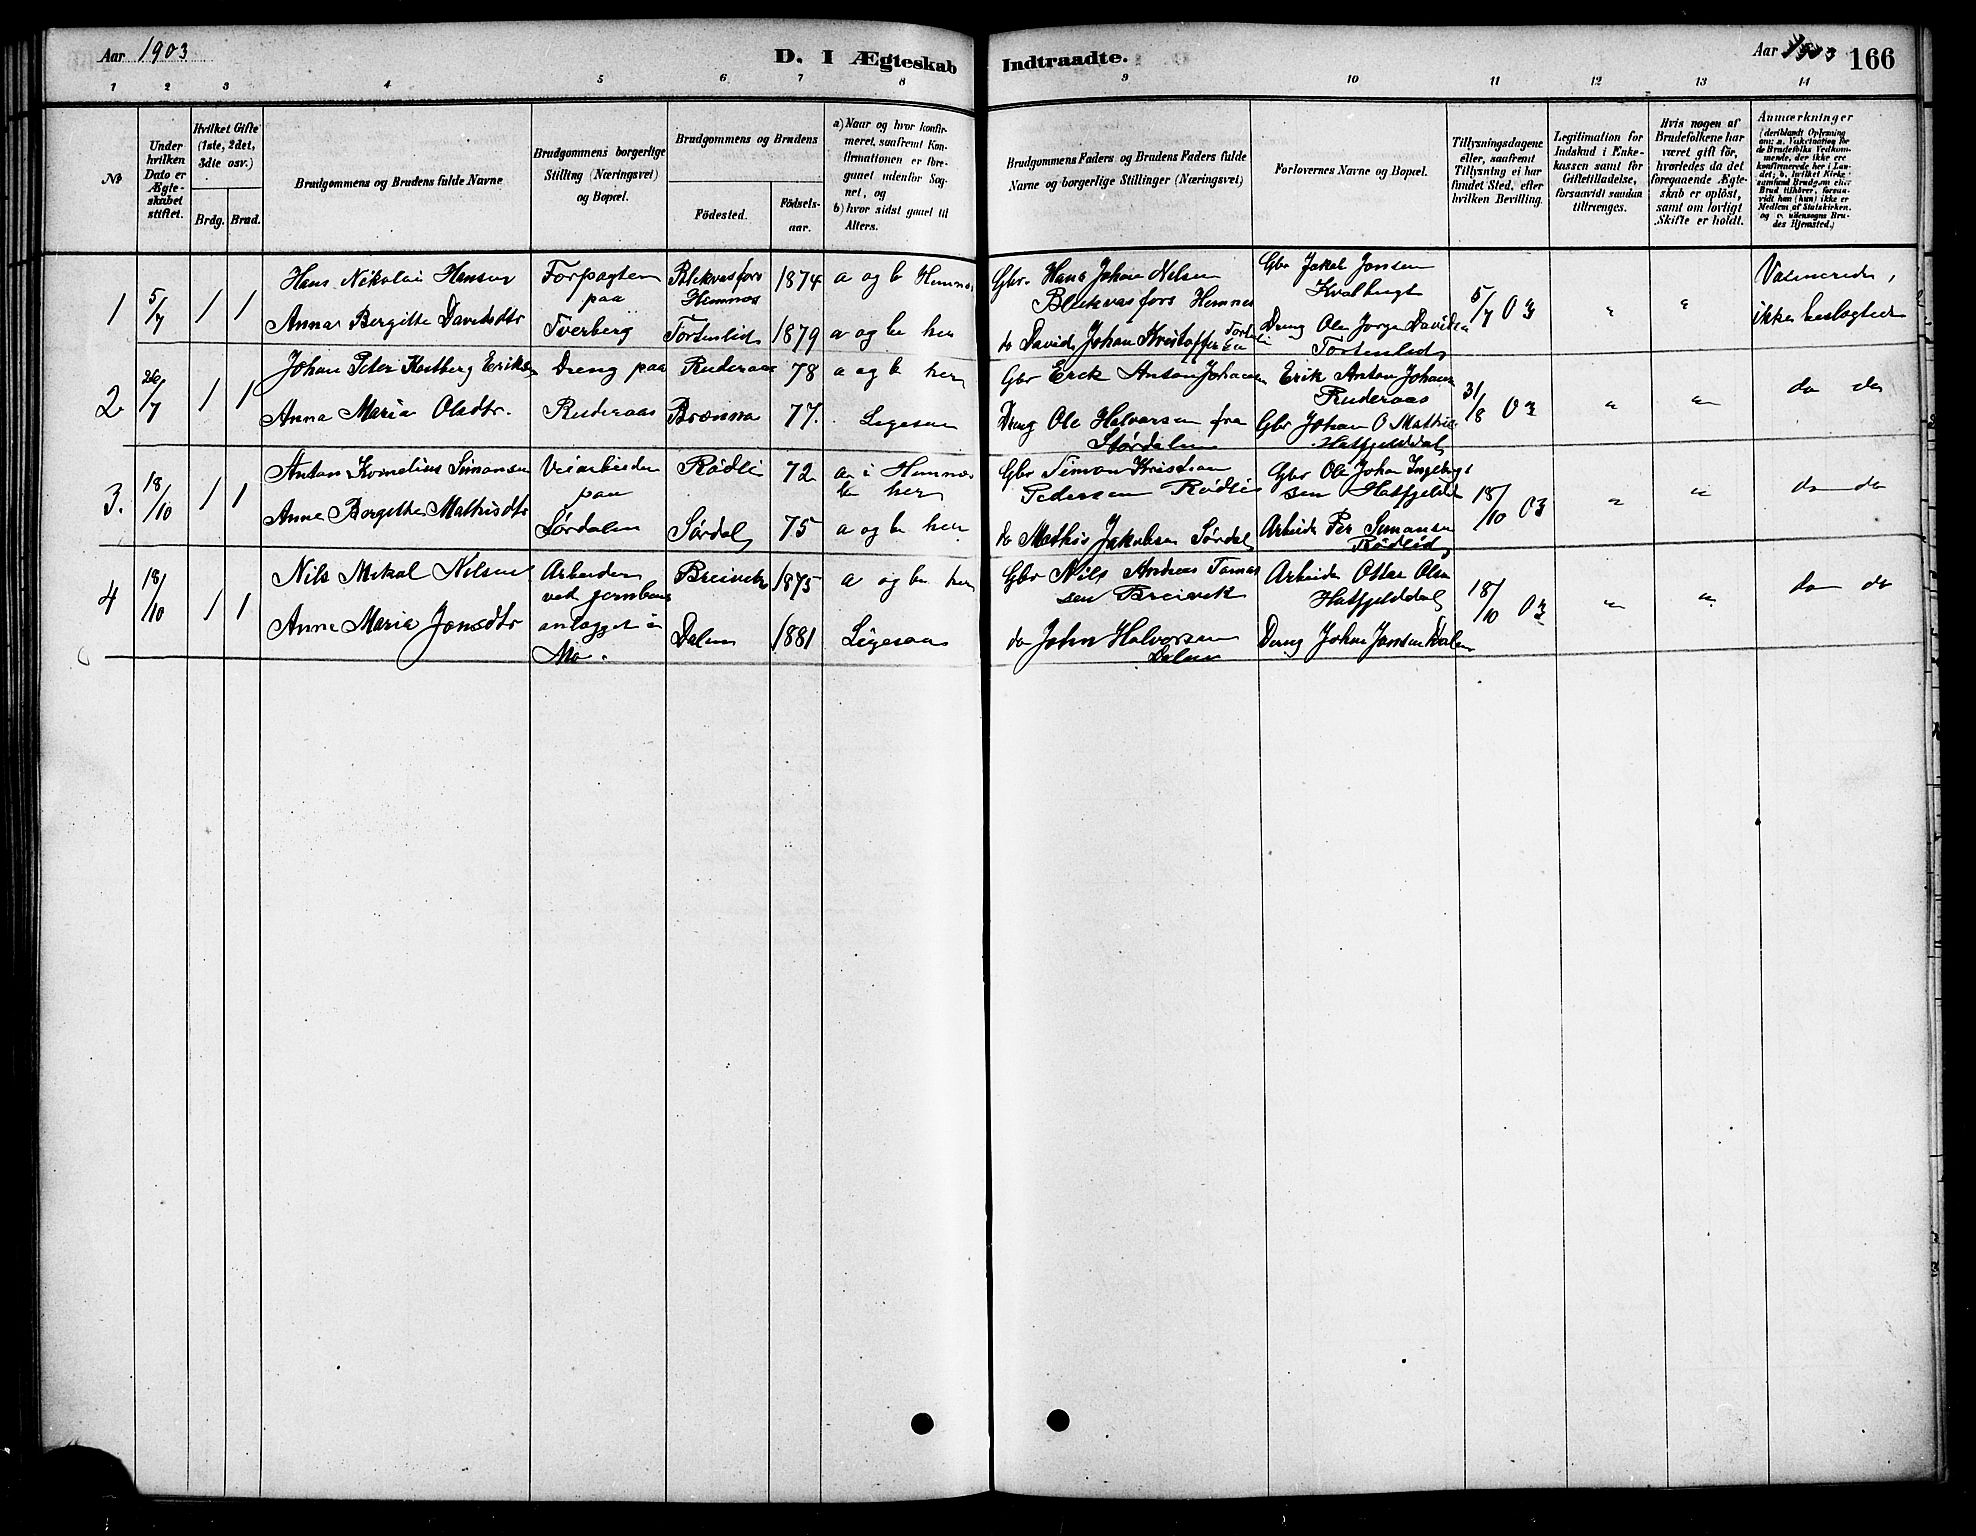 Aar 1903
D. I Ægteskab Indtraadte.
Aar 1903
166
1 2 3 4 5 6 7 8 9 10 11 12 13 14
No
Under hvilken Dato er Ægteskabet stiftet.
Hvilket Gifte (1ste, 2det, 3die osv.)
Brdg. Brud.
Brudgommens og Brudens fulde Navne
Brudgommens borgerlige Stilling (Næringsvei) og Bopæl.
Brudgommens og Brudens
Födested.
Födselsaar.
a) Naar og hvor konfirmeret, saafremt Konfirmationen er foregaaet udenfor Sognet, og
b) hvor sidst gaaet til Alters.
Brudgommens Faders og Brudens Faders fulde Navne og borgerlige Stillinger (Næringsvei)
Forlovernes Navne og Bopæl.
Tillysningsdagene eller, saafremt Tillysning ei har fundet Sted, efter hvilken Bevilling.
Legitimation for Indskud i Enkekassen samt for Giftetilladelse, forsaavidt saadan tiltrænges.
Hvis nogen af Brudefolkene har været gift før, hvorledes da det foregaaende Ægteskab er opløst, samt om lovligt Skifte er holdt.
Anmærkninger
(deriblandt Oplysning om: a. Vakcination for de Brudefolks Vedkommende, der ikke ere konfirmerede her i Landet; b. hvilket Kirkesamfund Brudgom eller Brud tilhører, forsaavidt han (hun) ikke er Medlem af Statskirken, og c. udensogns Brudes Hjemsted.)
1 5/7 1 1
Hans Nikolai Hansen
Anna Bergitte Davidsdtr
Forpagter
paa
Tverberg
Blekvasfors
Hemnes
Tortenlid
1874
1879
a og b Hemnes
a og b her
Gbr. Hans Johan Nilsen
Blekvasfors Hemnes
do David Johan Kristoffersen Tortenli
Gbr Jakob Jonsen
Kvalbugt
Dreng Ole Jørgen Davidsen
Tortenlid
5/7 03
" "
Vaksinerede,
ikke beslægtede
2. 26/7 1 1
Johan Peter Eriksen
Anna Maria Olsdtr.
Dreng paa
Ruderaas
Ruderaas
Brønnø
78
77.
a og b her
Ligesaa
Gbr Erik Anton Johansen
Dreng Ole Halvorsen fra
Størdalen
Erik Anton Johans
Ruderaas
Gbr Johan O Mathis
Hatfjelddal
31/8 03
" "
do do
3. 18/10 1 1
Anton Kornelius Simonsen
Anne Bergitte Mathisdtr
Veiarbeider
paa
Sørdalen
Rødli
Sørdal
72
75
a i Hemnes
b her
a og b her
Gbr Simon Kristian
Pedersen Rødli
do Mathis Jakobsen Sørdal
Gbr Ole Johan Ingebrigt
sen Hatfjeldd
Arbeider Per Simonsen
Rødlid
18/10 03
" "
do do
4 18/10 1 1
Nils Mikal Nilsen
Anne Maria Jonsdtr
Arbeider
ved jernbane
anlægget i
Mo.
Breivik
Dalen
1875
1881
a og b her
Ligesaa
Gbr Nils Andreas Tomas
sen Breivik
do John Halvorsen
Dalen
Arbeider Ottar Olsen
Hatfjelddal
Dreng Johan Jonsen Dalen
18/10 03
" "
do do